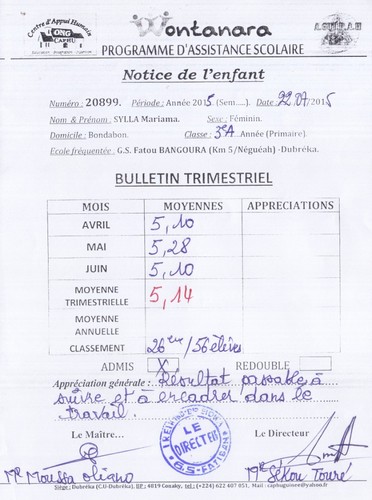 Centre d'Appui Humain
ONG
CAPHU
Wontanara
PROGRAMME D'ASSISTANCE SCOLAIRE
Notice de l'enfant
Numéro : 20899. Période : Année 2015 (Sem.....). Date : 22.07/2015
Nom & Prénom : SYLLA Mariama. Sexe : Féminin.
Domicile : Bondabon. Classe : 3eA. Année (Primaire).
Ecole fréquentée : G.S. Fatou BANGOURA (Km 5/Néguéah) -Dubréka.
BULLETIN TRIMESTRIEL
MOIS MOYENNES APPRECIATIONS
AVRIL 5,10
MAI 5,28
JUIN 5,10
MOYENNE TRIMESTRIELLE 5,14
MOYENNE ANNUELLE
CLASSEMENT 26ème/56 élèves
ADMIS X REDOUBLE
Appréciation générale : Résultat passable à
suivre et à encadrer dans le
travail.
Le Maître... Le Directeur
LE DIRECTEUR
Mr Moussa Mr Sékou Touré
Siège : Dubréka (C.U-Dubréka), BP : 4019 Conakry, Tel : (+224) 622 407 051, Mail :